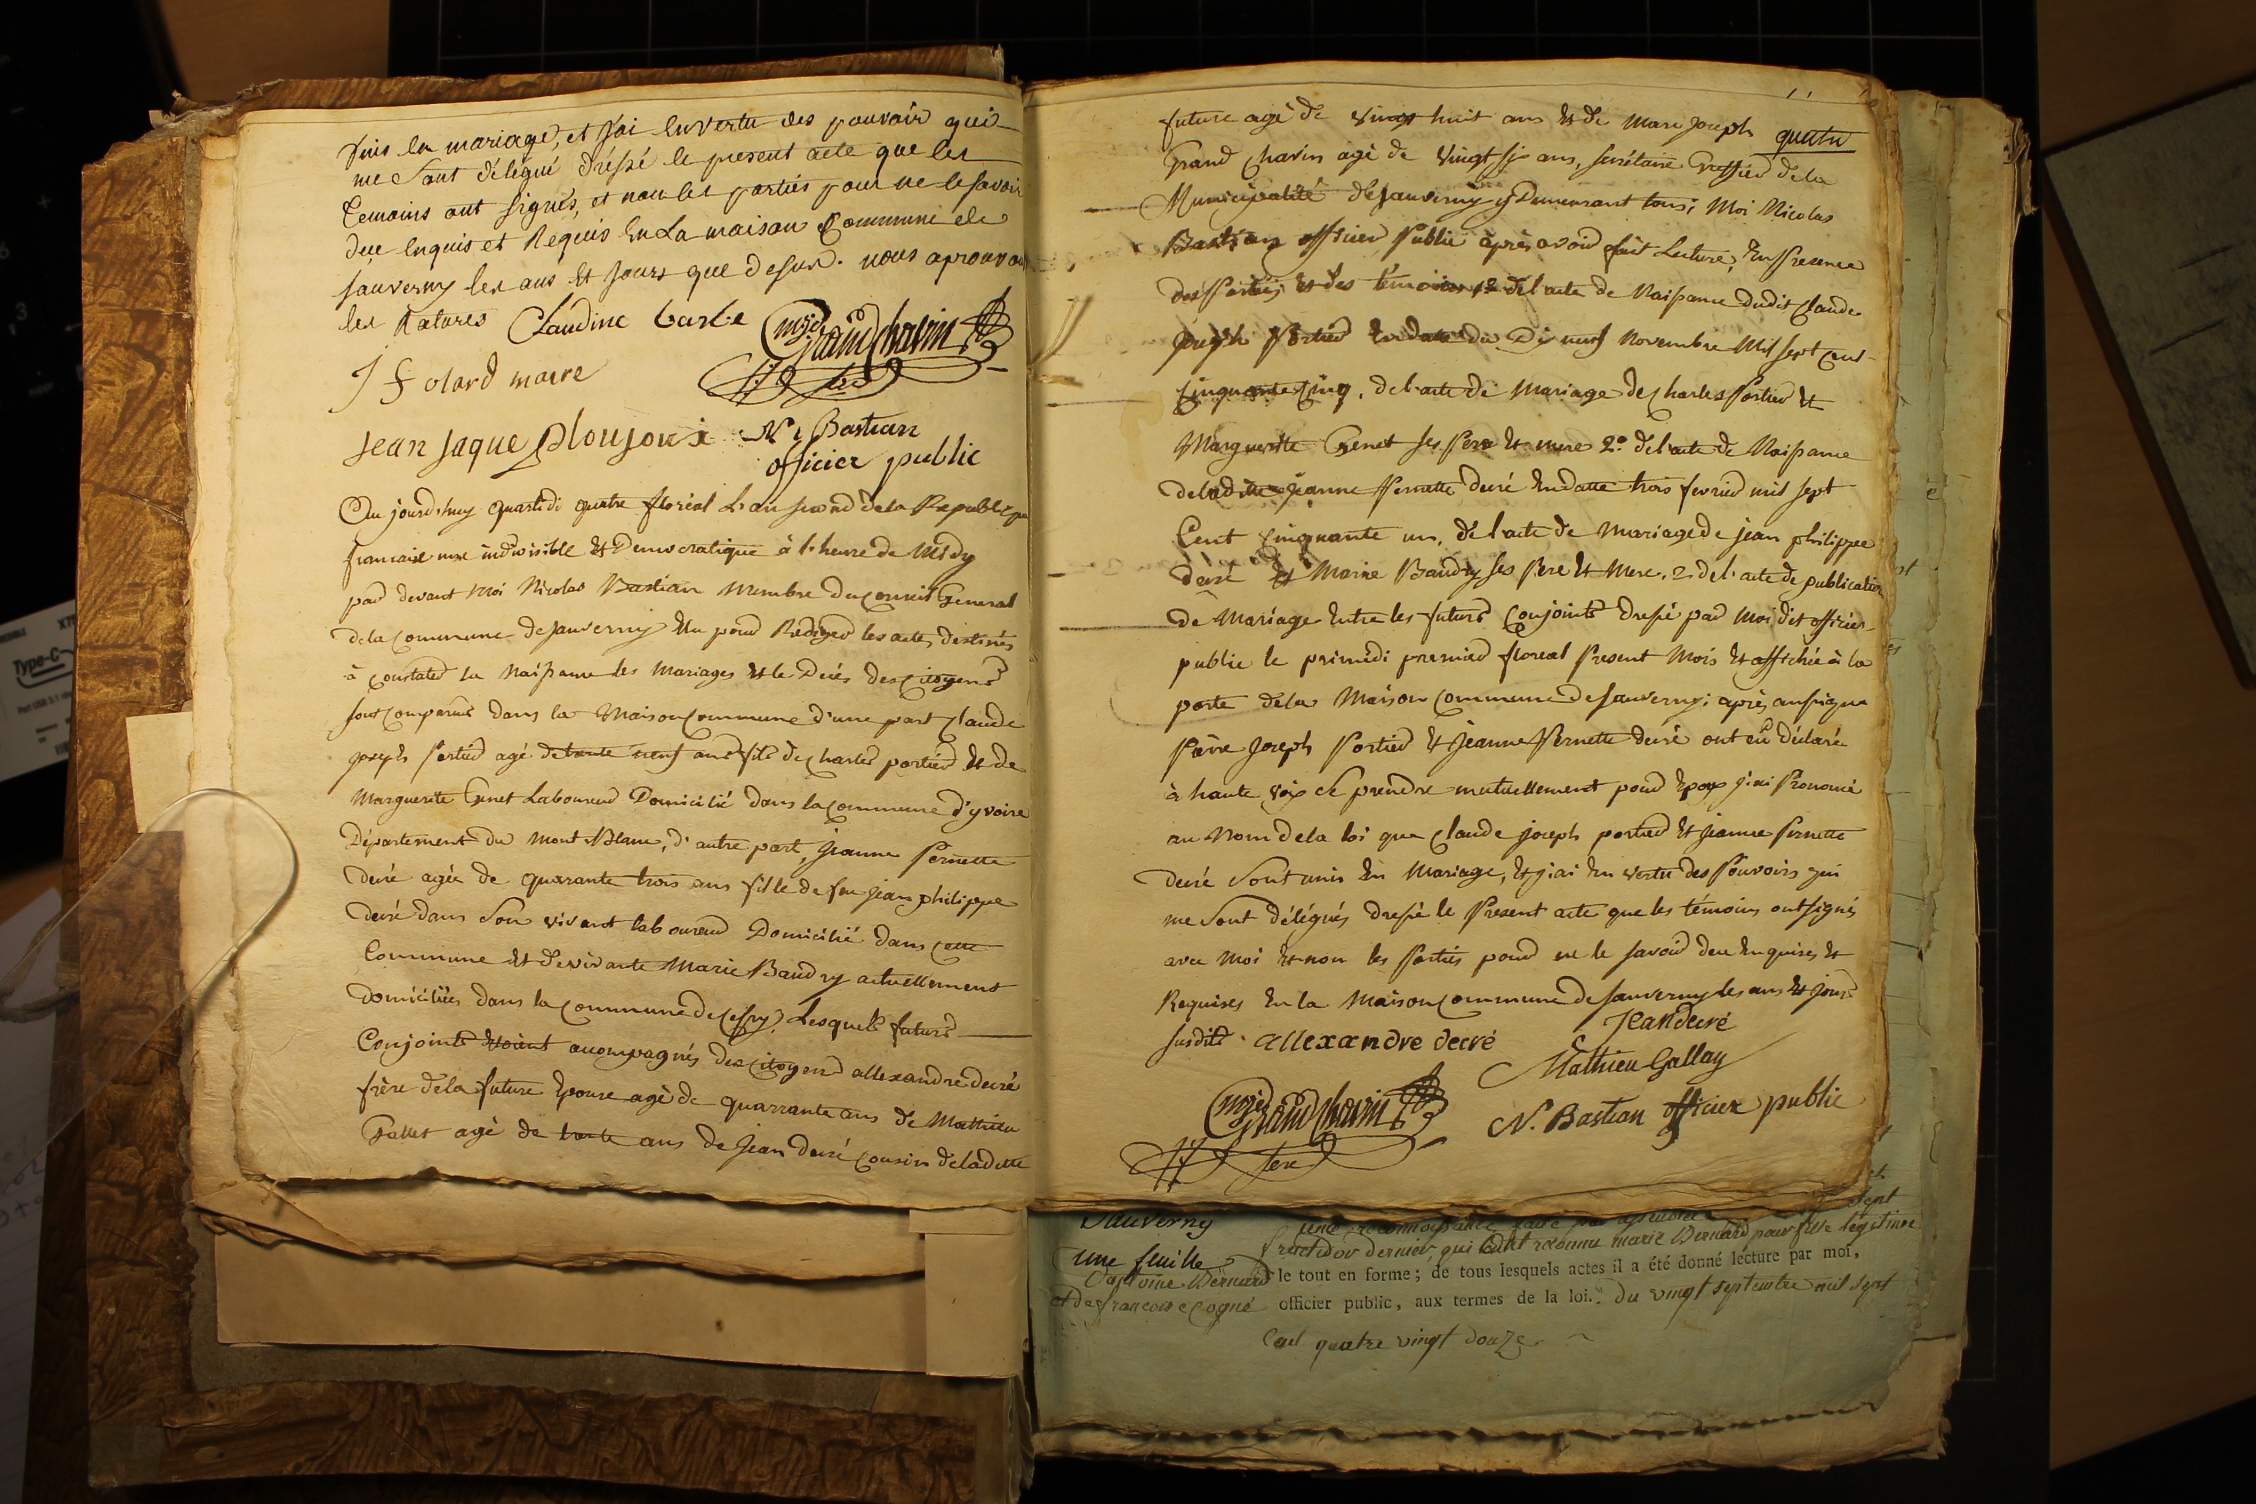 unis en mariage, et j'ai en vertu des pouvoir qui
me sont délégué dréssé le present acte que les
temoins ont signés, et non les parties pour ne le savoir
due enquis et Requis En La maison Commune de
sauverny les ans et jours que dessus. nous aprouvons
les Ratures Claudine barbe mje Grand Chavin
J f olard maire
sre
jean jaque ploujoux N. Bastian
officier public
Au jourd'huy quartidi quatre floréal L'an second de la Republique
francaise une indivisible et Democratique à l'heure de Midy
par devant Moi Nicolas Bastian Membre du conseil General
de la commune de sauverny Elu pour Rediger les actes destinés
à constater la Naissance les Mariages et le Décés des citoyens
sont comparus dans la Maison commune d'une part Claude
joseph Portier agé de trente neuf ans fils de Charles portier et de
Marguerite Genet Laboureur Domicilié dans la commune d'yvoire
Département du Mont Blanc, d'autre part, jeanne Pernette
decré agée de quarante trois ans fille de feu jean philippe
decré dans son vivant laboureur Domicilié dans cette
Commune et de vivante Marie Baudry actuellement
domiciliée dans la commune de Cessy, Lesquels futurs
Conjoints étoient acompagnés des citoyens allexandre decré
frère de la future Epouse agé de quarrante ans de Mathieu
Gallet agé de trente ans de jean decré cousin de ladette
11
future agé de vingt huit ans et de Marc joseph quatre
Grand Chavin agé de vingt six ans, secrétaire Greffier de la
Municipalité de sauverny y Demeurant tous; Moi Nicolas
Bastian officier Public après avoir fait Lecture, En Presence
des Parties et des témoins 1º de l'acte de Naissance dudit Claude
joseph Portier En date du Dix neuf Novembre Mil sept cent
Cinquante Cinq, de l'acte de Mariage de Charles Portier et
Marguerite Genet ses Pere et mere 2º de l'acte de Naissance
de ladite jeanne Pernette decré En datte trois fevrier mil sept
Cent cinquante un, de l'acte de mariage de jean philippe
decré et Marie Baudry ses Pere et Mere, 2 de l'acte de publication
de Mariage Entre les futurs Conjoints Dressé par Moi dit officier
public le primidi premier floreal Present Mois et affichée à la
porte de la Maison Commune de sauverny; après aussi que
Joseph Portier et jeanne Pernette decré ont eu déclaré
à haute voix ce prendre mutuellement pour Epoux j'ai Prononcé
au Nom de la loi que Claude joseph portier et jeanne Pernette
decré sont unis En Mariage, et j'ai En vertu des Pouvoirs qui
me sont délégués dressé le Present acte que les témoins ont signés
avec Moi et non les Parties pour ne le savoir deu Enquises et
Requises En la Maison commune de sauverny les ans et jours
susdits. allexandre decré Jean decré
Mathieu Gallay
mje Grand Chavin
N. Bastian officier public
sre
Sauverny
une feuille
d'antoine Bernard
et de francoise cogné
sept
une reconnoissance faite
fructidor dernier, qui ont reconnu marie Bernard pour fille légitime
le tout en forme; de tous lesquels actes il a été donné lecture par moi,
officier public, aux termes de la loi. Du vingt septembre mil sept
Cent quatre vingt douze
Type-C